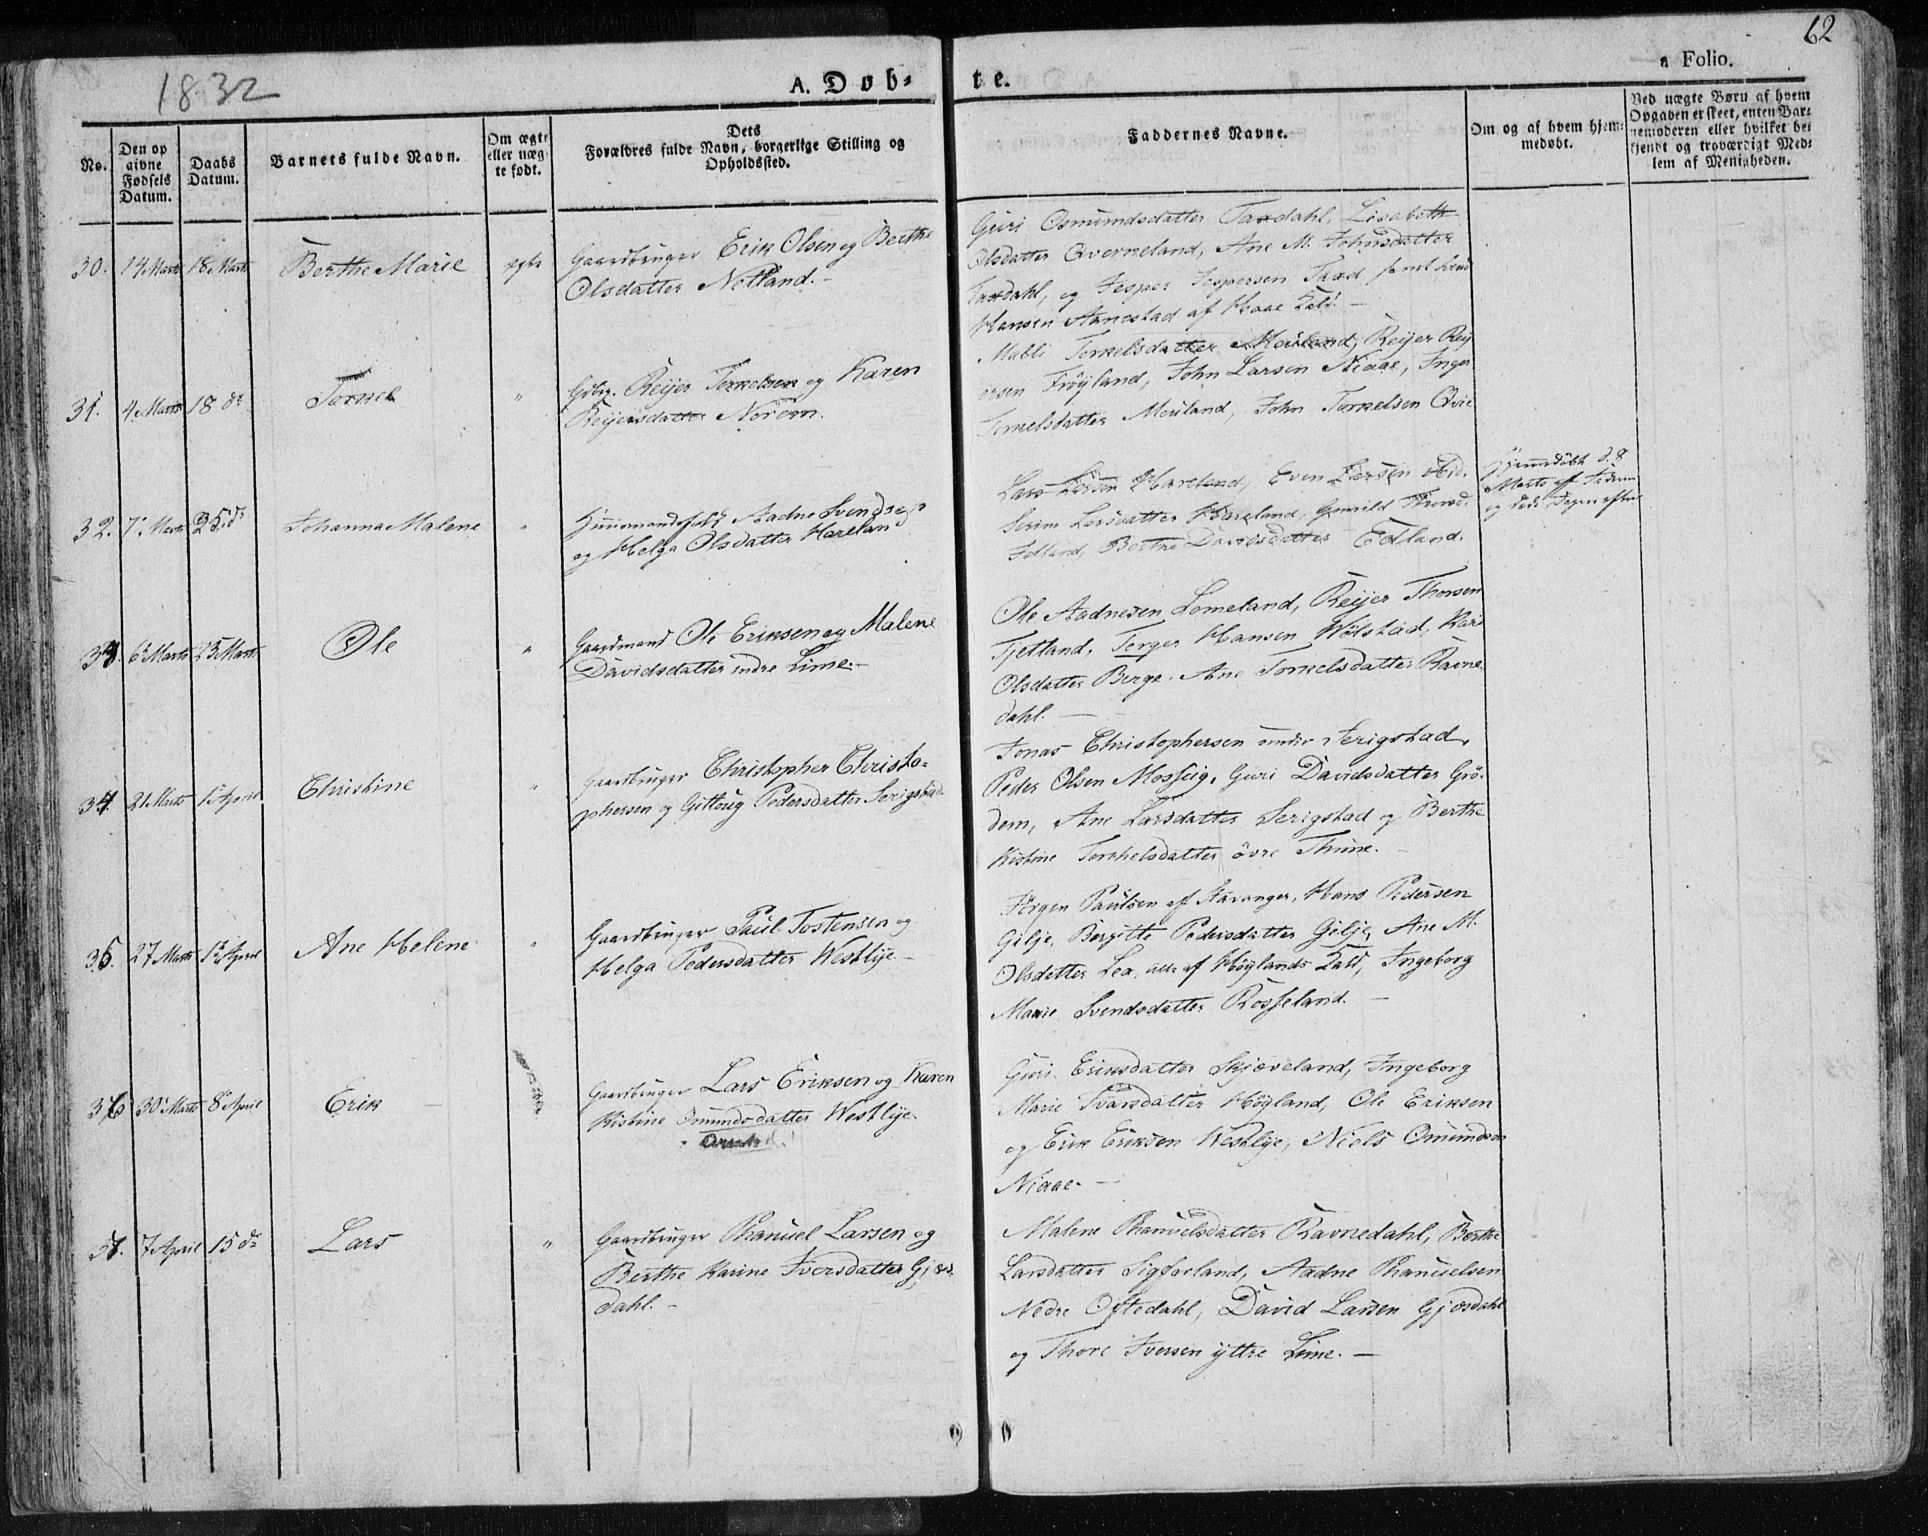 62
1832
A. Døb-
te.
a Folio.
No.
Den op
givne
Fødsels
Datum.
Daabs
Datum.
Barnets fulde Navn.
Om ægte
eller uæg-
te født.
Dets
Forældres fulde Navn, borgerlige Stilling og
Opholdssted.
Faddernes Navne.
Om og af hvem hjem-
medøbt.
Ved uægte Børn af hvem
Opgaven er skeet, enten Bar-
nemoderen eller hvilket be-
kjendt og troværdigt Med-
lem af Menigheden.
30. 14 Marts 18 Marts Berthe Marie ægte
Gaardbruger Erik Olsen og Berthe
Olsdatter Netland.-
Guri Osmundsdatter Taxdahl, Lisabeth
Olsdatter Qverneland, Ane M. Johnsdatter
Taxdahl, og Jesper Jespersen Taxd samt
Hansen Aanestad af Haae Kald.-
31. 4 Marts 18 ds "
Gdbr. Reijer Torkelsen og Karen
Reijersdatter Norem.
Malli Torkelsdatter Mouland, Reijer Reij
ersen Frøyland, John Larsen Niaae, Inger
Torkelsdatter Mouland, John Torkelsen Qvie
32. 7 Marts 25 ds Johanna Malene "
Huusmandsfolk Aadne Svendsen
og Helga Olsdatter Hareland
Lars Larsen Hareland, Even Larsen
Serine Larsdatter Hareland, Gunild
Berthe Davidsdatter Edland.
Hjemmedøbt d. 8
Marts af Faderen
og døde Dagen efter
33. 6 Marts 25 Marts Ole "
Gaardmand Ole Eriksen og Malene
Davidsdatter indre Lime.-
Ole Aadnesen Lomeland, Reijer Thorsen
Tjetland, Terger Hansen Wølstad, Kari
Olsdatter Berge, Ane Torkelsdatter Ravne
dahl.-
34. 21 Marts 1 April Christine "
Gaardbruger Christopher Christo-
phersen og Gitlaug Pedersdatter Serigstad
Jonas Christophersen Serigstad,
Peder Olsen Mosseig, Guri Davidsdatter Grø-
dem, Ane Larsdatter Serigstad og Berthe
Kistine Torchelsdatter øvre Thime.-
35. 27 Marts April Ane Helene "
Gaardbruger Paul Tostensen og
Helga Pedersdatter Westlije.-
Jørgen Paulsen af Stavanger, Hans Pedersen
Gilje, Bergitte Pedersdatter Gilje, Ane M.
Olsdatter Lea, alle af Høylands Kald, Ingeborg
Marie Svendsdatter Rosseland.-
36 30 Marts 8 April Erik -
Gaardbruger Lars Eriksen og Karen
Kistine Omundsdatter Westlije
Guri Eriksdatter Skjæveland, Ingeborg
Marie Ivarsdatter Høyland, Ole Eriksen
og Erik Eriksen Westlije, Niels Omundsen
Niaae.-
7 April 15 ds Lars "
Gaardbruger Phanuel Larsen og
Berthe Karine Iversdatter Gjes
dahl.-
Malene Phanuelsdatter Ravnedahl, Berthe
Larsdatter Sigfarland, Aadne Phanuelsen
Nedre Oftedahl, David Larsen Gjesdahl
og Thore Iversen ijttre Lime.-